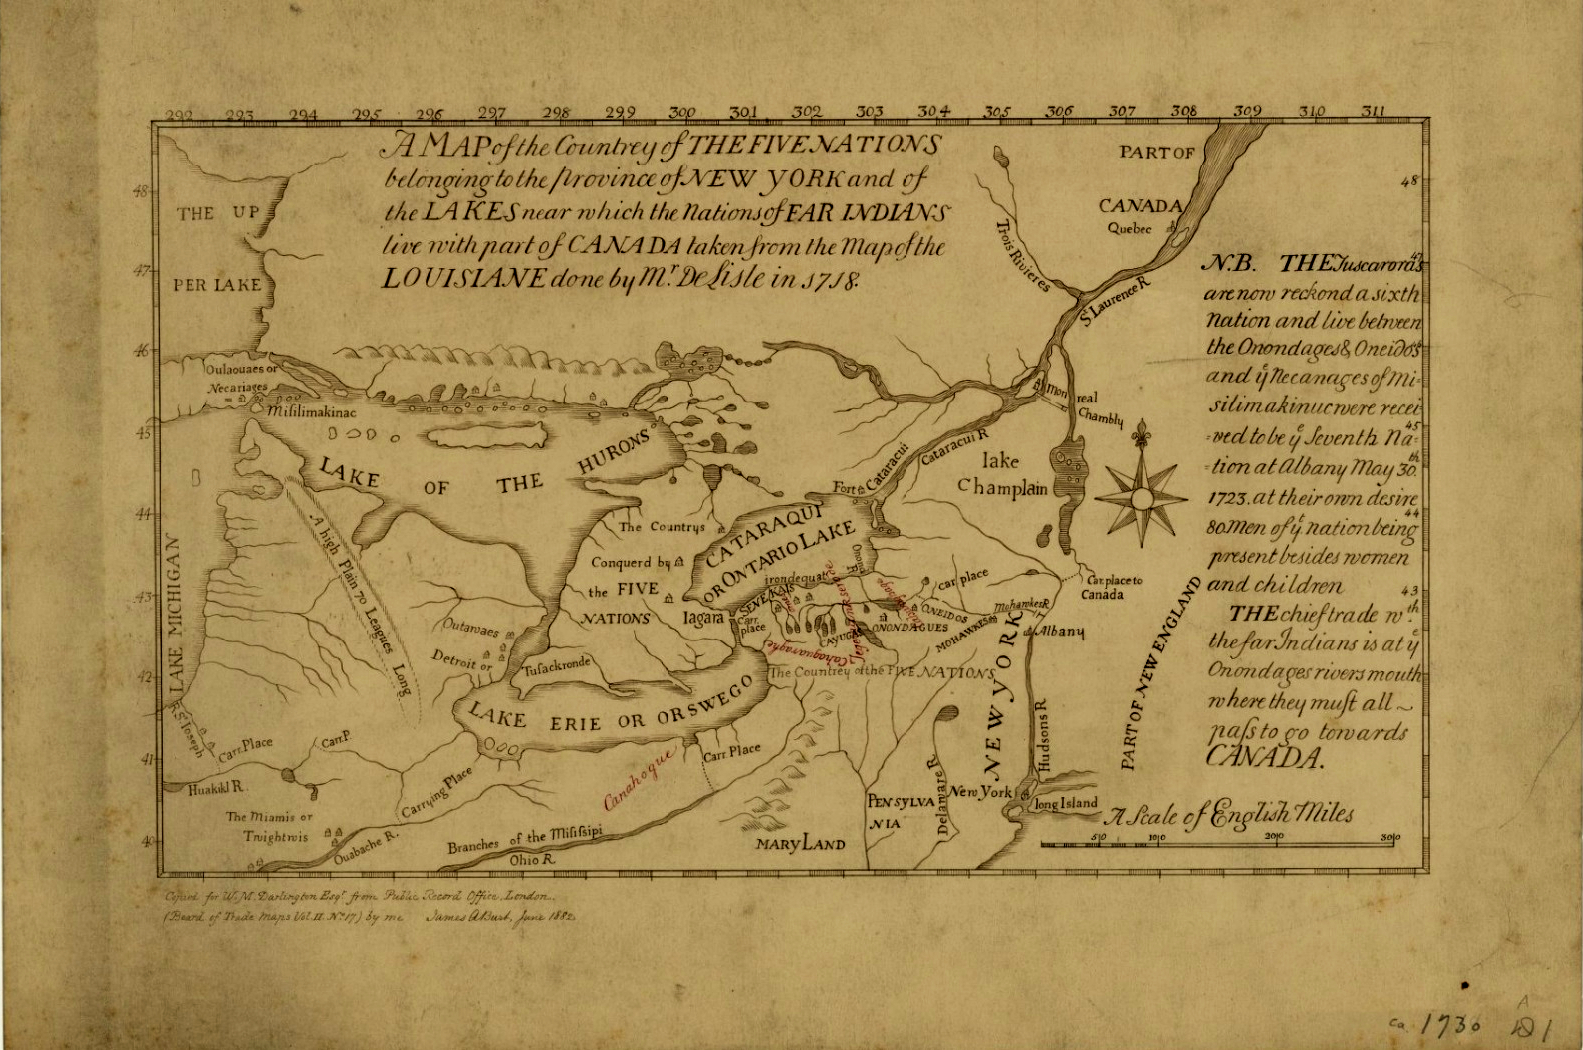 292 293 294 295 296 297 298 299 300 301 302 303 304 305 306 307 308 309 310 311
A MAP of the Countrey of THE FIVE NATIONS
belonging to the province of NEW YORK and of
the LAKES near which the Nations of FAR INDIANS
live with part of CANADA taken from the Map of the
LOUISIANE done by Mr. De Lisle in 1718.
PART OF
CANADA
Quebec
Trois Rivieres
St Laurence R
48
47
46
45
44
43
42
41
40
48
45
44
43
THE UP
PER LAKE
N.B. THE Tuscarora's
are now reckond a sixth
Nation and live between
the Onondages & Oneido's
and ye Necanages of Mi=
silimakinuc were recei
=ved to be ye Seventh Na=
=tion at Albany May 30th
1723. at their own desire
80 Men of ye nation being
present besides women
and children
THE chief trade wth.
the far Indians is at ye
Onondages rivers mouth
where they must all ~
pass to go towards
CANADA.
Oulaouaes or
Necariages
Misilimakinac
LAKE OF THE HURONS
Mon real
Chambly
Cataracui R
Fort Cataracui
lake
Champlain
The Countrys
Conquerd by
the FIVE
NATIONS
CATARAQUI
OR ONTARIO LAKE
LAKE MICHIGAN
A high Plain 70 Leagues Long
irondequat
Iagara
Carr.
place
CAYUGAS
ONONDAGUES
ONEIDOS
MOHAWKES
Mohawkes R
car place
Car.place to
Canada
Albany
The Countrey of the FIVE NATIONS
Outawaes
Detroit or
Tusackronde
LAKE ERIE OR ORSWEGO
R St Joseph
Carr.Place
Carr.P.
Huakiki R.
The Miamis or
Twightwis
Ouabache R.
Carrying Place
Canahogue
Carr.Place
Branches of the Misisipi
Ohio R.
MARYLAND
PENSYLVA
NIA
Delaware R.
NEW YORK
Hudsons R
New York
long Island
PART OF NEW ENGLAND
A Scale of English Miles
50 100 200 300
Copied for W. M. Darlington Esqr. from Public Record Office, London.
(Board of Trade Maps Vol. II. No. 17) by me James A Burt, June 1882
ca. 1730